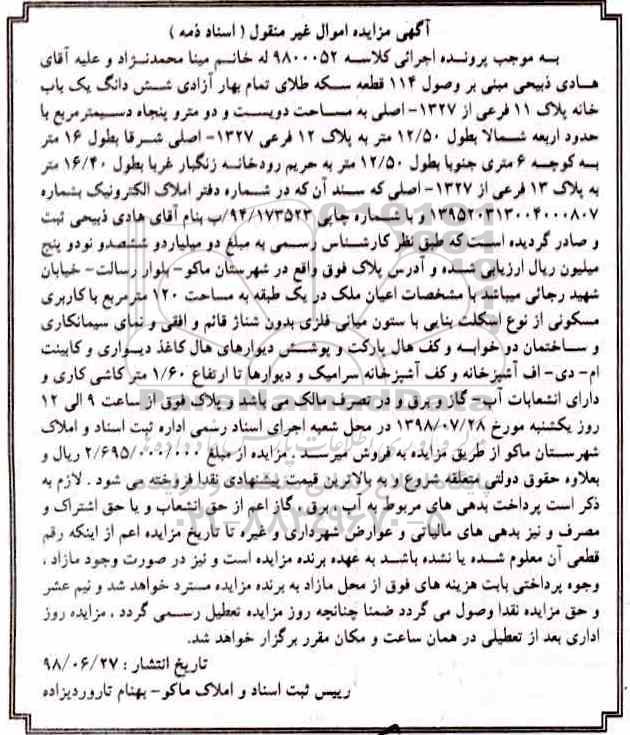 آگهی مزایده اموال غیر منقول ( اسناد ذمه )
به موجب پرونده اجرائی کلاسه ۹۸۰۰۰۵۲ له خانم مینا محمدنژاد و علیه آقای
هادی ذبیحی مبنی بر وصول ۱۱۴ قطعه سکه طلای تمام بهار آزادی شش دانگ یک باب
خانه پلاک ۱۱ فرعی از ۱۳۲۷- اصلی به مساحت دویست و دو مترو پنجاه دسیمترمربع با
حدود اربعه شمالا بطول ۱۲/۵۰ متر به پلاک ۱۲ فرعی ۱۳۲۷- اصلی شرقا بطول ۱۶ متر
به کوچه ۶ متری جنوبا بطول ۱۲/۵۰ متر به حریم رودخانه زنگبار غربا بطول ۱۶/۴۰ متر
به پلاک ۱۳ فرعی از ۱۳۲۷- اصلی که سند آن که در شماره دفتر املاک الکترونیک بشماره
۱۳۹۵۲۰۳۱۳۰۰۴۰۰۰۸۰۷ و با شماره چاپی ۹۴/۱۷۳۵۲۳/ب بنام آقای هادی ذبیحی ثبت
و صادر گردیده است که طبق نظر کارشناس رسمی به مبلغ دو میلیاردو ششصدو نودو پنج
میلیون ریال ارزیابی شده و آدرس پلاک فوق واقع در شهرستان ماکو- بلوار رسالت- خیابان
شهید رجائی میباشد با مشخصات اعیان ملک در یک طبقه به مساحت ۱۲۰ مترمربع با کاربری
مسکونی از نوع اسکلت بنایی با ستون میانی فلزی بدون شناژ قائم و افقی و نمای سیمانکاری
و ساختمان دو خوابه و کف هال پارکت و پوشش دیوارهای هال کاغذ دیواری و کابینت
ام- دی- اف آشپزخانه و کف آشپزخانه سرامیک و دیوارها تا ارتفاع ۱/۶۰ متر کاشی کاری و
دارای انشعابات آب- گاز و برق و در تصرف مالک می باشد و پلاک فوق از ساعت ۹ الی ۱۲
روز یکشنبه مورخ ۱۳۹۸/۰۷/۲۸ در محل شعبه اجرای اسناد رسمی اداره ثبت اسناد و املاک
شهرستان ماکو از طریق مزایده به فروش میرسد . مزایده از مبلغ ۲/۶۹۵/۰۰۰/۰۰۰ ریال و
بعلاوه حقوق دولتی متعلقه شروع و به بالاترین قیمت پیشنهادی نقدا فروخته می شود . لازم به
ذکر است پرداخت بدهی های مربوط به آب ، برق ، گاز اعم از حق انشعاب و یا حق اشتراک و
مصرف و نیز بدهی های مالیاتی و عوارض شهرداری و غیره تا تاریخ مزایده اعم از اینکه رقم
قطعی آن معلوم شده یا نشده باشد به عهده برنده مزایده است و نیز در صورت وجود مازاد ،
وجوه پرداختی بابت هزینه های فوق از محل مازاد به برنده مزایده مسترد خواهد شد و نیم عشر
و حق مزایده نقدا وصول می گردد ضمنا چنانچه روز مزایده تعطیل رسمی گردد ، مزایده روز
اداری بعد از تعطیلی در همان ساعت و مکان مقرر برگزار خواهد شد.
تاریخ انتشار : ۹۸/۰۶/۲۷
رییس ثبت اسناد و املاک ماکو- بهنام تاروردیزاده
ParsNamadData
۰۲۱-۸۸۳۴۹۶۷۰-۵